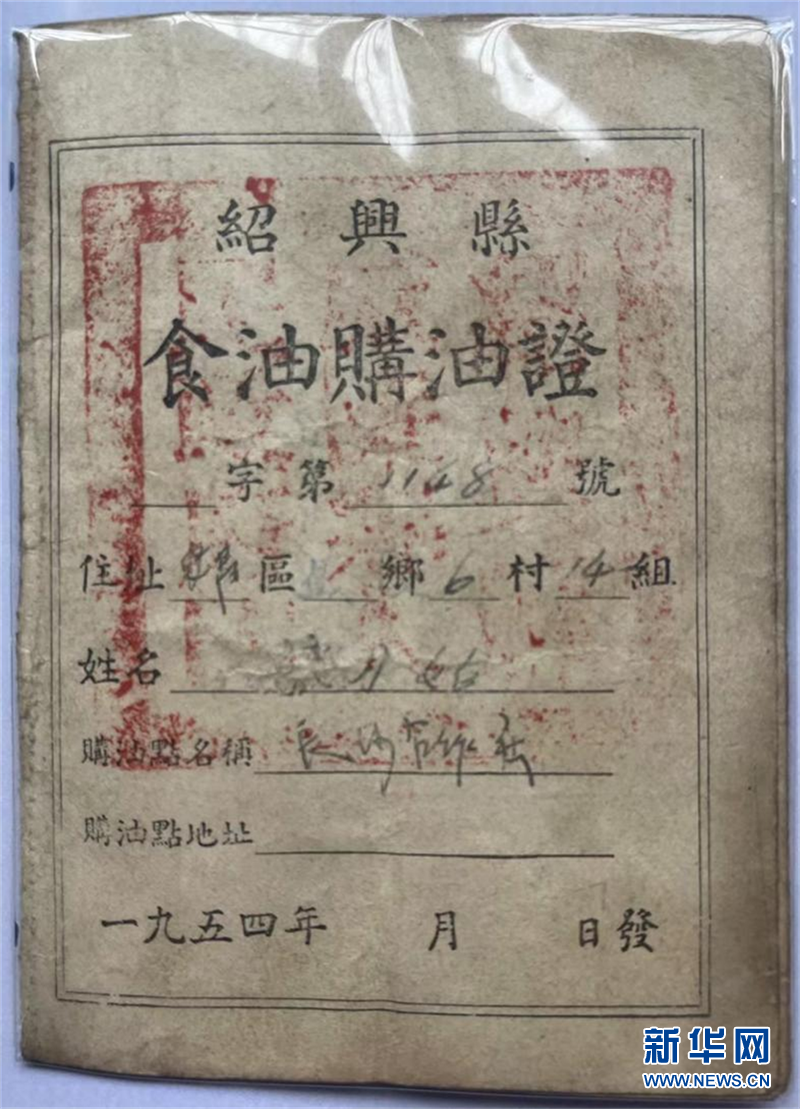 紹興縣
食油購油證
字第1148號
住址 區 鄉6村14組
姓名 月姑
購油點名稱 長沙合作社
購油點地址
一九五四年 月 日發
新华网
WWW.NEWS.CN